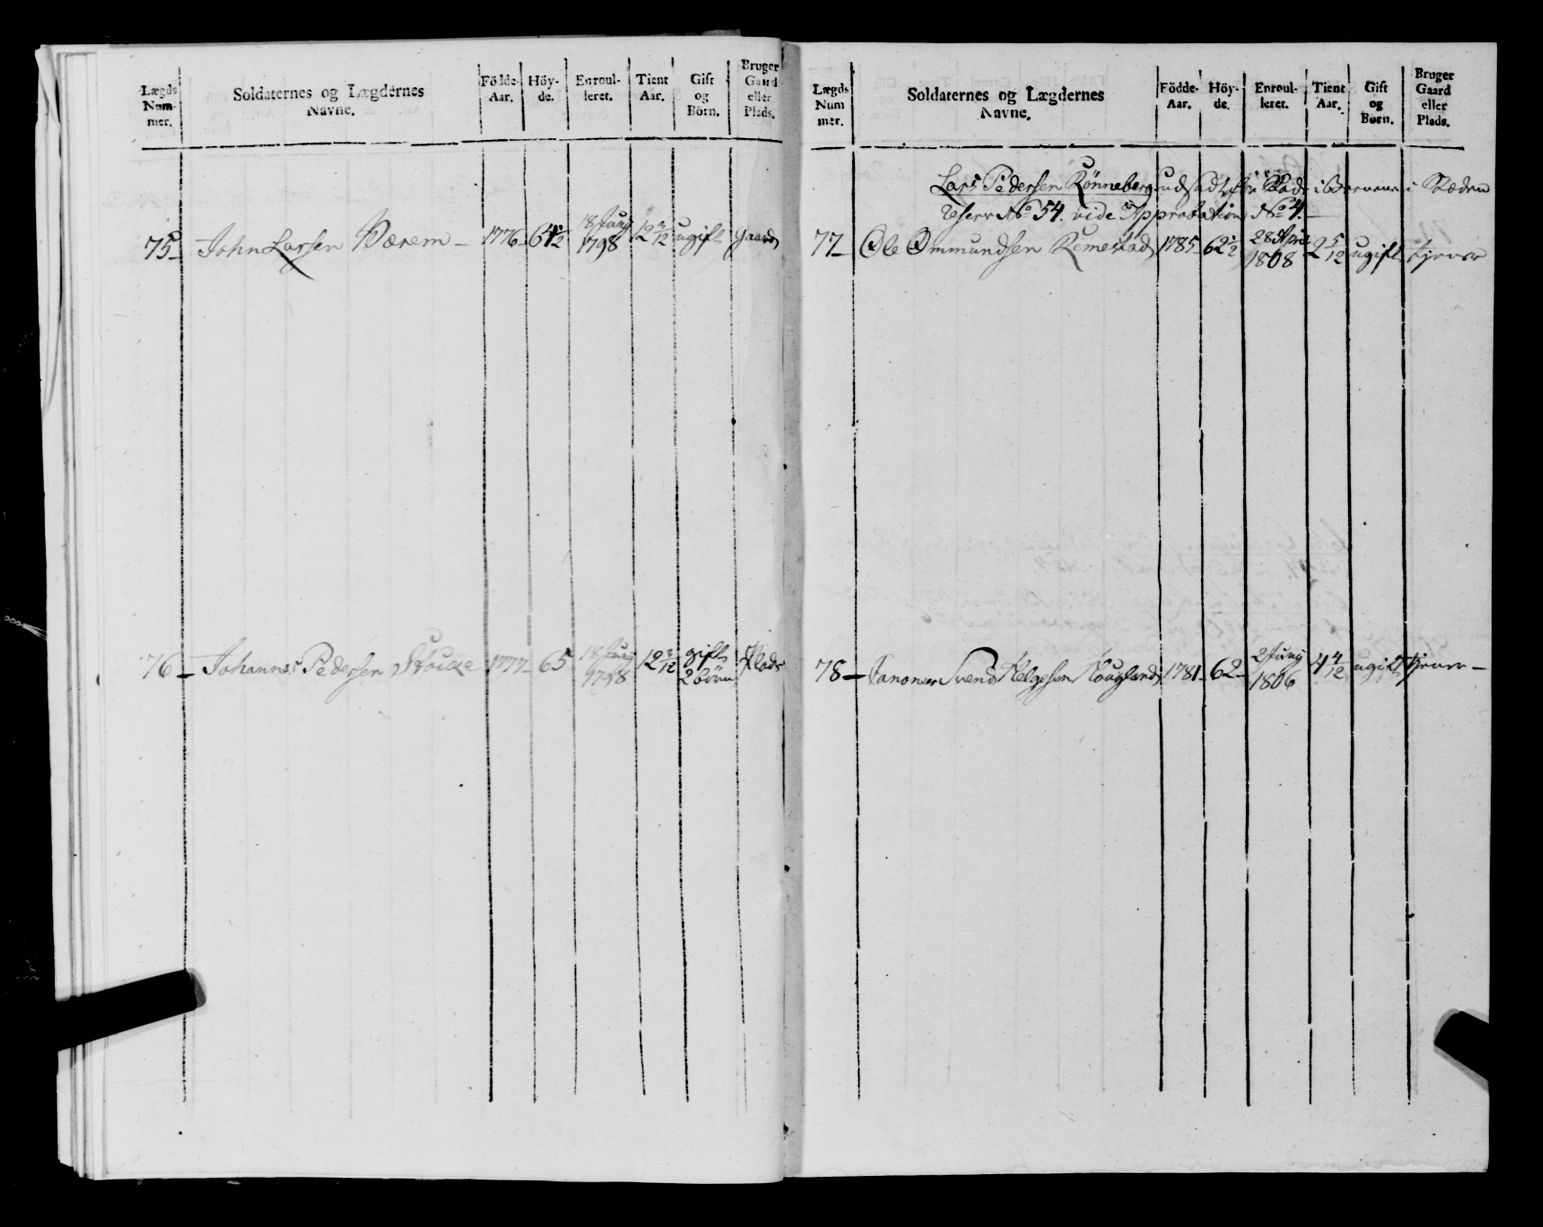 Lægds Num- mer. Soldaternes og Lægdernes Navne. Födde- Aar. Höy- de. Enroul- leret. Tient Aar. Gift og Börn. Bruger Gaard eller Plads.
75 John Larsen Værem 1776 64½ 18 Juny 1798 12 2/12 ugift gaard
76 Johannes Pedersen 1777 65 18 Juny 1798 12 2/12 gift 2 börn Plads
Lægds Num mer. Soldaternes og Lægdernes Navne. Födde- Aar. Höy- de. Enroul- leret. Tient Aar. Gift og Börn. Bruger Gaard eller Plads.
Lars Pedersen Rönneberg udsadt i
Reserv No 54. vide Approbation No 4.
77 Ole Ommundsen Remestad 1785 62½ 28 April 1808 2 5/12 ugift tjener
78 Svend Helgesen Haugland 1781 62 2 Juny 1806 4 4/12 ugift tjener